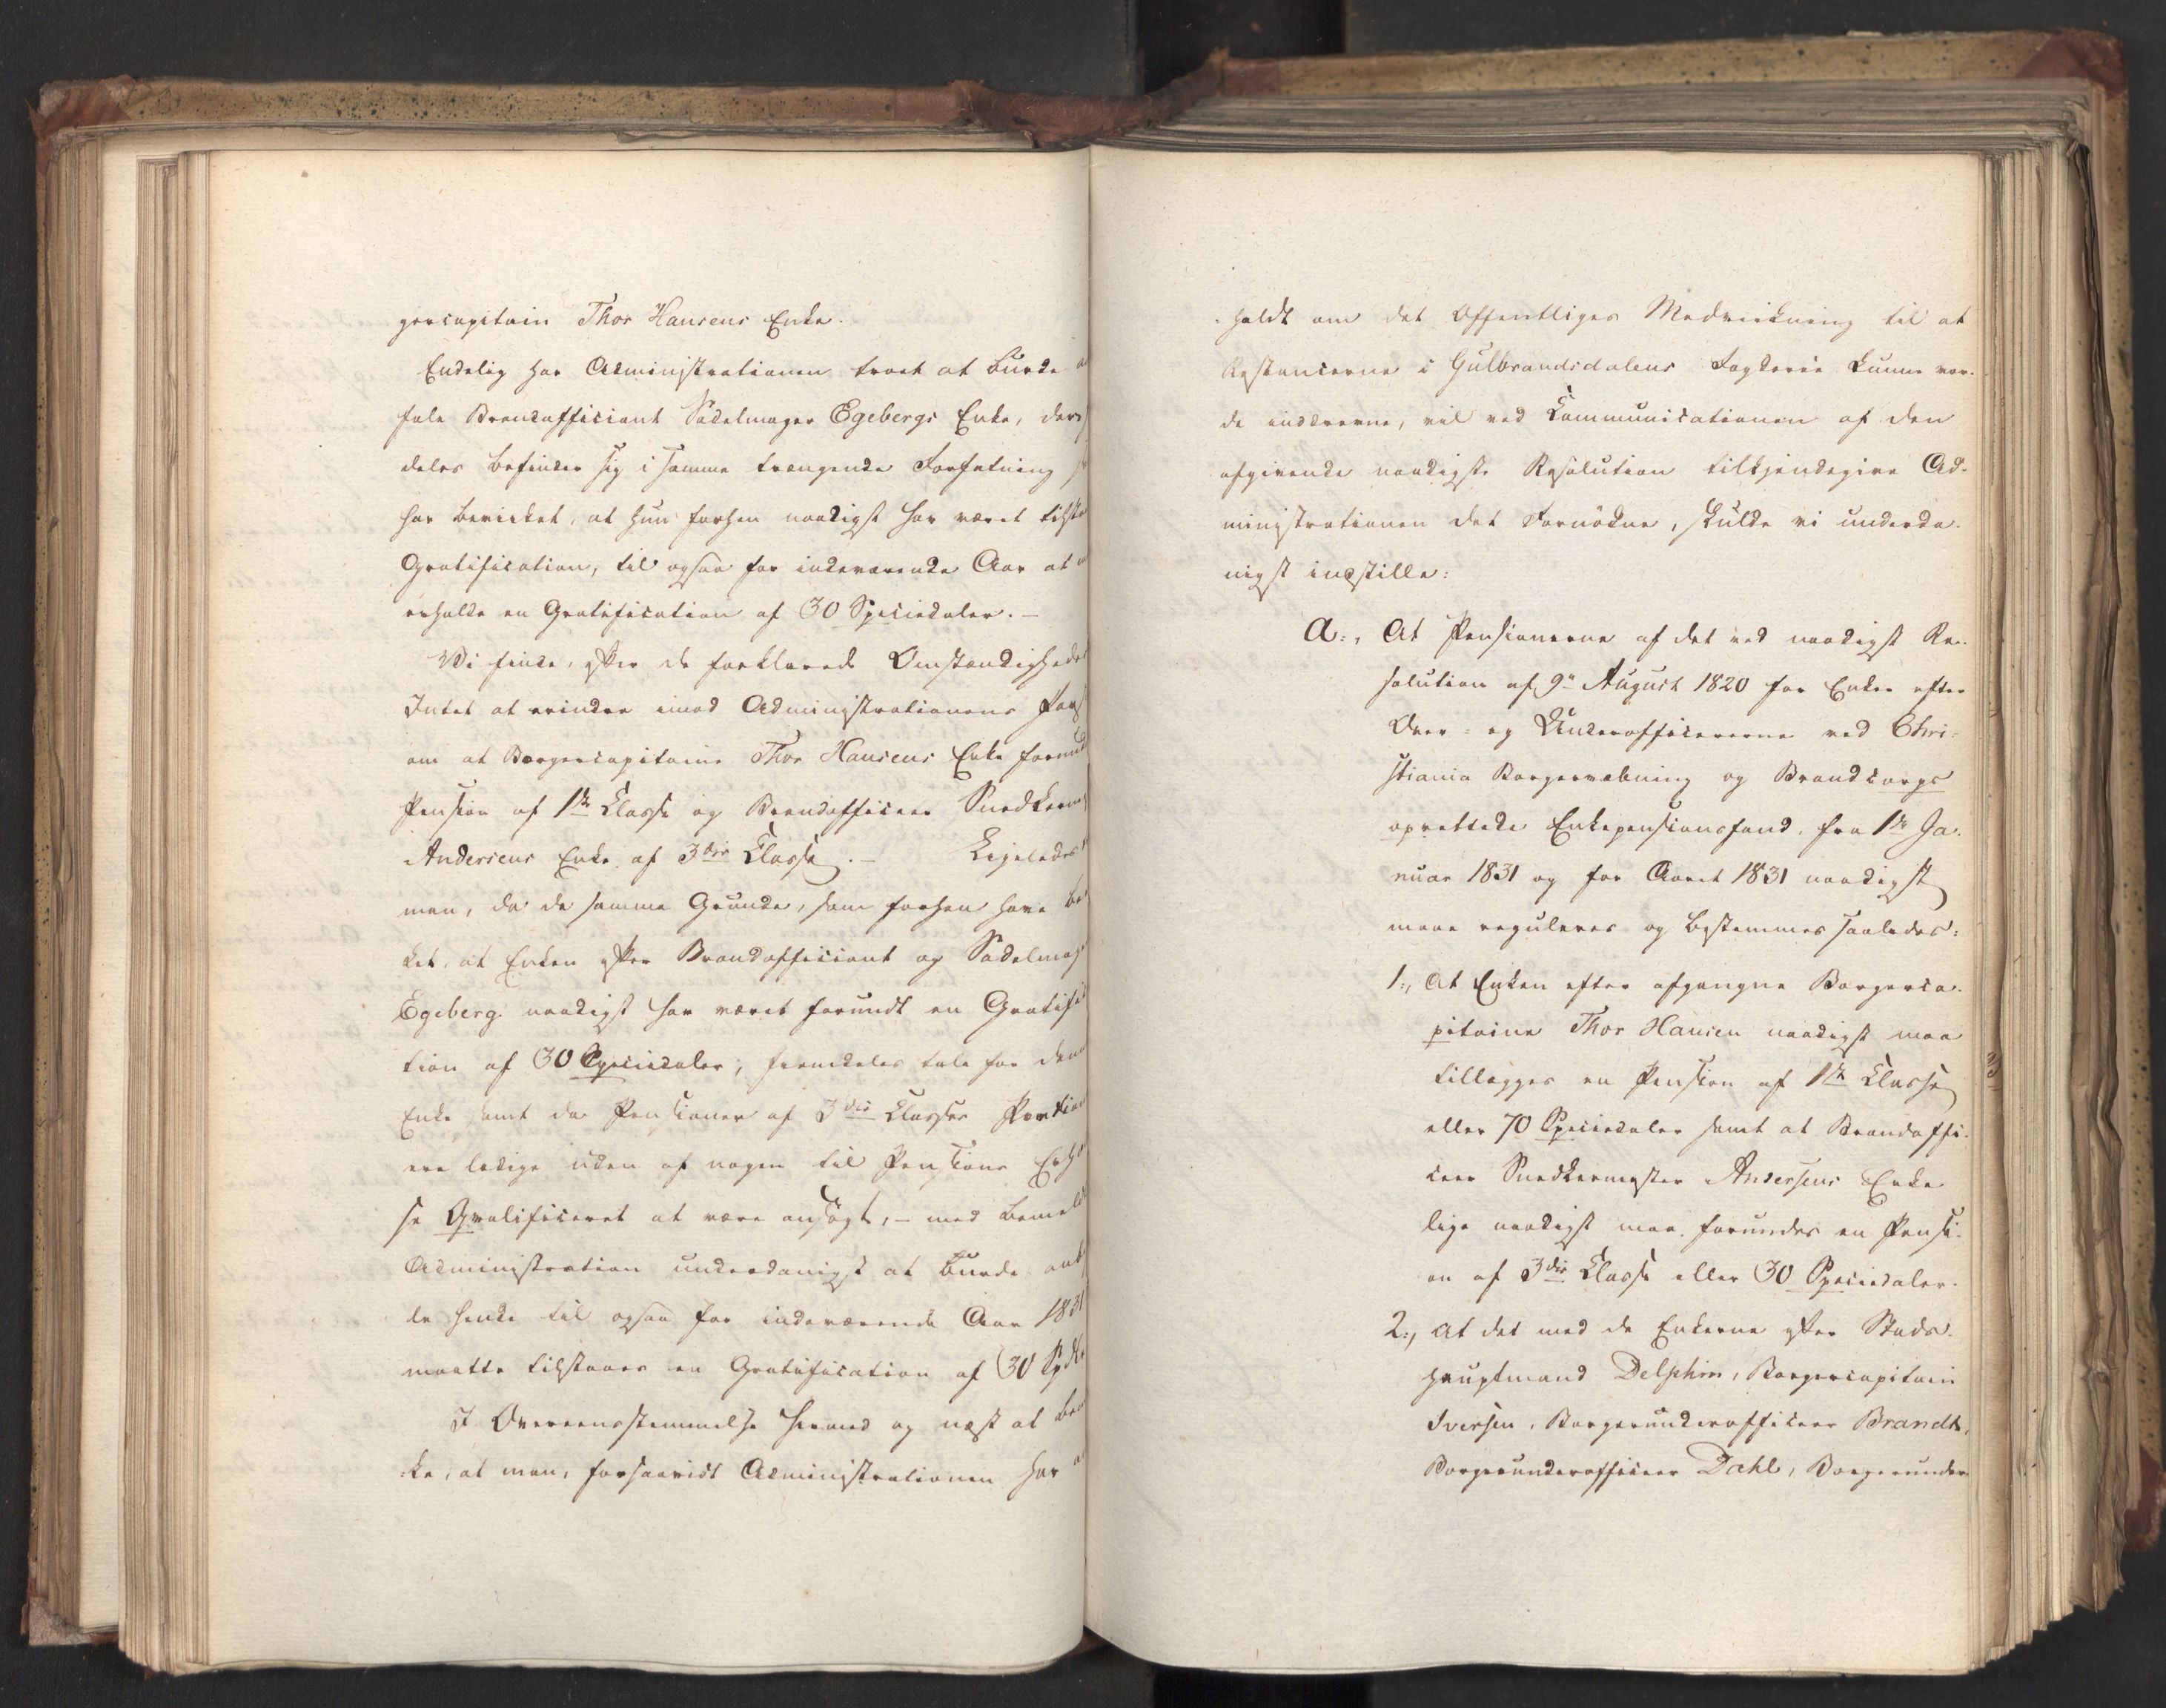 gercapitain Thor Hansens Enke.
Endelig har Administrationen troet at burde
fale Brandofficiant Sadelmager Egebergs Enke, der
deles befinder sig i samme trængende Forfatning
har bevirket, at hun forhen naadigst har været tilst
Gratification, til ogsaa for indeværende Aar at
erholde en Gratification af 30 Speciedaler. —
Vi finde, efter de forklarede Omstændigheder
Intet at erindre imod Administrationens For
om at Borgercapitaine Thor Hansens Enke forund
Pension af 1ste Classe og Brandofficeer Snedkerm
Andersens Enke af 3die Classe. — Ligeledes
man, da de samme Grunde, som forhen have be
ket, at Enken efter Brandofficiant og Sadelmag
Egeberg naadigst har været forundt en Gratifi
tion af 30 Speciedaler, fremdeles tale for den
Enke samt da Pensioner af 3die Classes Portion
ere ledige uden af nogen til Pensions Erh
se Qvalificeret at være ansøgt, — med bemeldt
Administration underdanigst at burde anb
le hende til ogsaa for indeværende Aar 1831
maatte tilstaaes en Gratification af 30 Spdlr
I Overeensstemmelse hermed og næst at be
ke, at man, forsaavidt Administrationen har
holdt om det Offentliges Medvirkning til at
Restancerne i Gulbrandsdalens Fogderie kunne vor-
de inddrevne, vil ved Communicationen af den
afgivende naadigste Resolution tilkjendegive Ad-
ministrationen det Fornødne, skulde vi underda-
nigst indstille:
A:, At Pensionerne af det ved naadigst Re-
solution af 9de August 1820 for Enker efter
Over- og Underofficererne ved Chri-
stiania Borgervæbning og Brandcorps
oprettede Enkepensionsfond, fra 1ste Ja-
nuar 1831 og for Aaret 1831 naadigst
maae reguleres og bestemmes saaledes:
1:, At Enken efter afgangne Borgerca-
pitaine Thor Hansen naadigst maa
tillægges en Pension af 1ste Classe
eller 70 Speciedaler samt at Brandoffi-
ceer Snedkermester Andersens Enke
lige naadigst maa forundes en Pensi-
on af 3die Classe eller 30 Speciedaler.
2:, At det med de Enkerne efter Stads-
hauptmand Delphin, Borgercapitain
Iversen, Borgerunderofficeer Brandt,
Borgerunderofficeer Dahl, Borgerunder